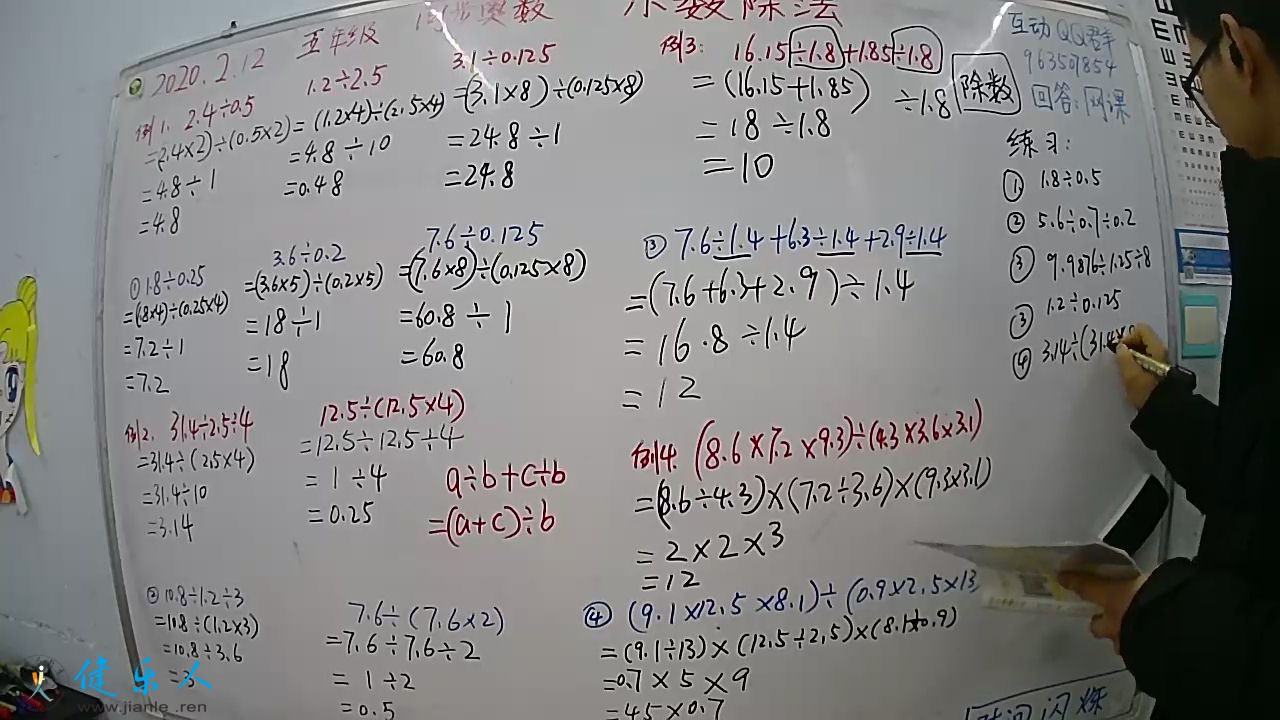 2020.2.12 五年级 同步奥数 小数除法
例1. 2.4÷0.5
=(2.4×2)÷(0.5×2)
=4.8÷1
=4.8
1.2÷2.5
=(1.2×4)÷(2.5×4)
=4.8÷10
=0.48
3.1÷0.125
=(3.1×8)÷(0.125×8)
=24.8÷1
=24.8
①1.8÷0.25
=(1.8×4)÷(0.25×4)
=7.2÷1
=7.2
3.6÷0.2
=(3.6×5)÷(0.2×5)
=18÷1
=18
7.6÷0.125
=(7.6×8)÷(0.125×8)
=60.8÷1
=60.8
例2. 31.4÷2.5÷4
=31.4÷(2.5×4)
=31.4÷10
=3.14
12.5÷(12.5×4)
=12.5÷12.5÷4
=1÷4
=0.25
a÷b+c÷b
=(a+c)÷b
②10.8÷1.2÷3
=10.8÷(1.2×3)
=10.8÷3.6
=3
7.6÷(7.6×2)
=7.6÷7.6÷2
=1÷2
=0.5
例3: 16.15÷1.8+1.85÷1.8
=(16.15+1.85)÷1.8 除数
=18÷1.8
=10
③7.6÷1.4+6.3÷1.4+2.9÷1.4
=(7.6+6.3+2.9)÷1.4
=16.8÷1.4
=12
例4. (8.6×7.2×9.3)÷(4.3×3.6×3.1)
=(8.6÷4.3)×(7.2÷3.6)×(9.3×3.1)
=2×2×3
=12
④(9.1×12.5×8.1)÷(0.9×2.5×13
=(9.1÷13)×(12.5÷2.5)×(8.1÷0.9)
=0.7×5×9
=45×0.7
互动QQ群
回答:网课
练习:
① 1.8÷0.5
② 5.6÷0.7÷0.2
③ 9.9876÷1.25÷8
③ 1.2÷0.125
④ 3.14÷(31.4×
健乐人
www.jianle.ren